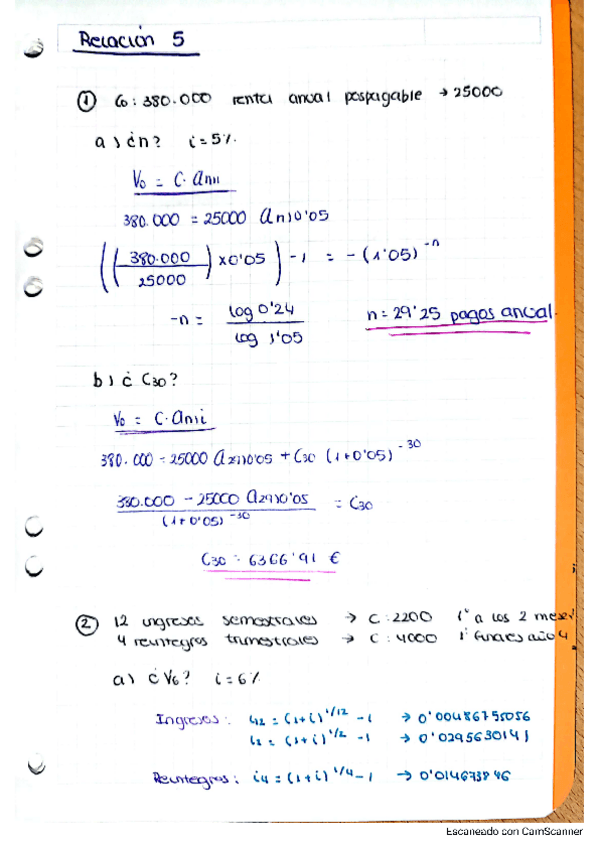 Relación 5
① C₀: 380.000 renta anual pospagable → 25000
a) ¿n? i=5%
V₀ = C · an¬i
380.000 = 25000 an¬0'05
((380.000/25000) x0'05) -1 = -(1'05)^-n
-n = log 0'24 / log 1'05 n= 29'25 pagos anual.
b) ¿C30?
V₀ = C · an¬i
380.000 = 25000 a29¬0'05 + C30 (1+0'05)^-30
(380.000 - 25000 a29¬0'05) / (1+0'05)^-30 = C30
C30 = 6366'91 €
② 12 ingresos semestrales → C: 2200 1º a los 2 meses
4 reintegros trimestrales → C: 4000 1º finales año 4
a) ¿V₆? i=6%
Ingresos: i12 = (1+i)^1/12 -1 → 0'00486755056
i2 = (1+i)^1/2 -1 → 0'0295630141
Reintegros: i4 = (1+i)^1/4 -1 → 0'014673846
Escaneado con CamScanner